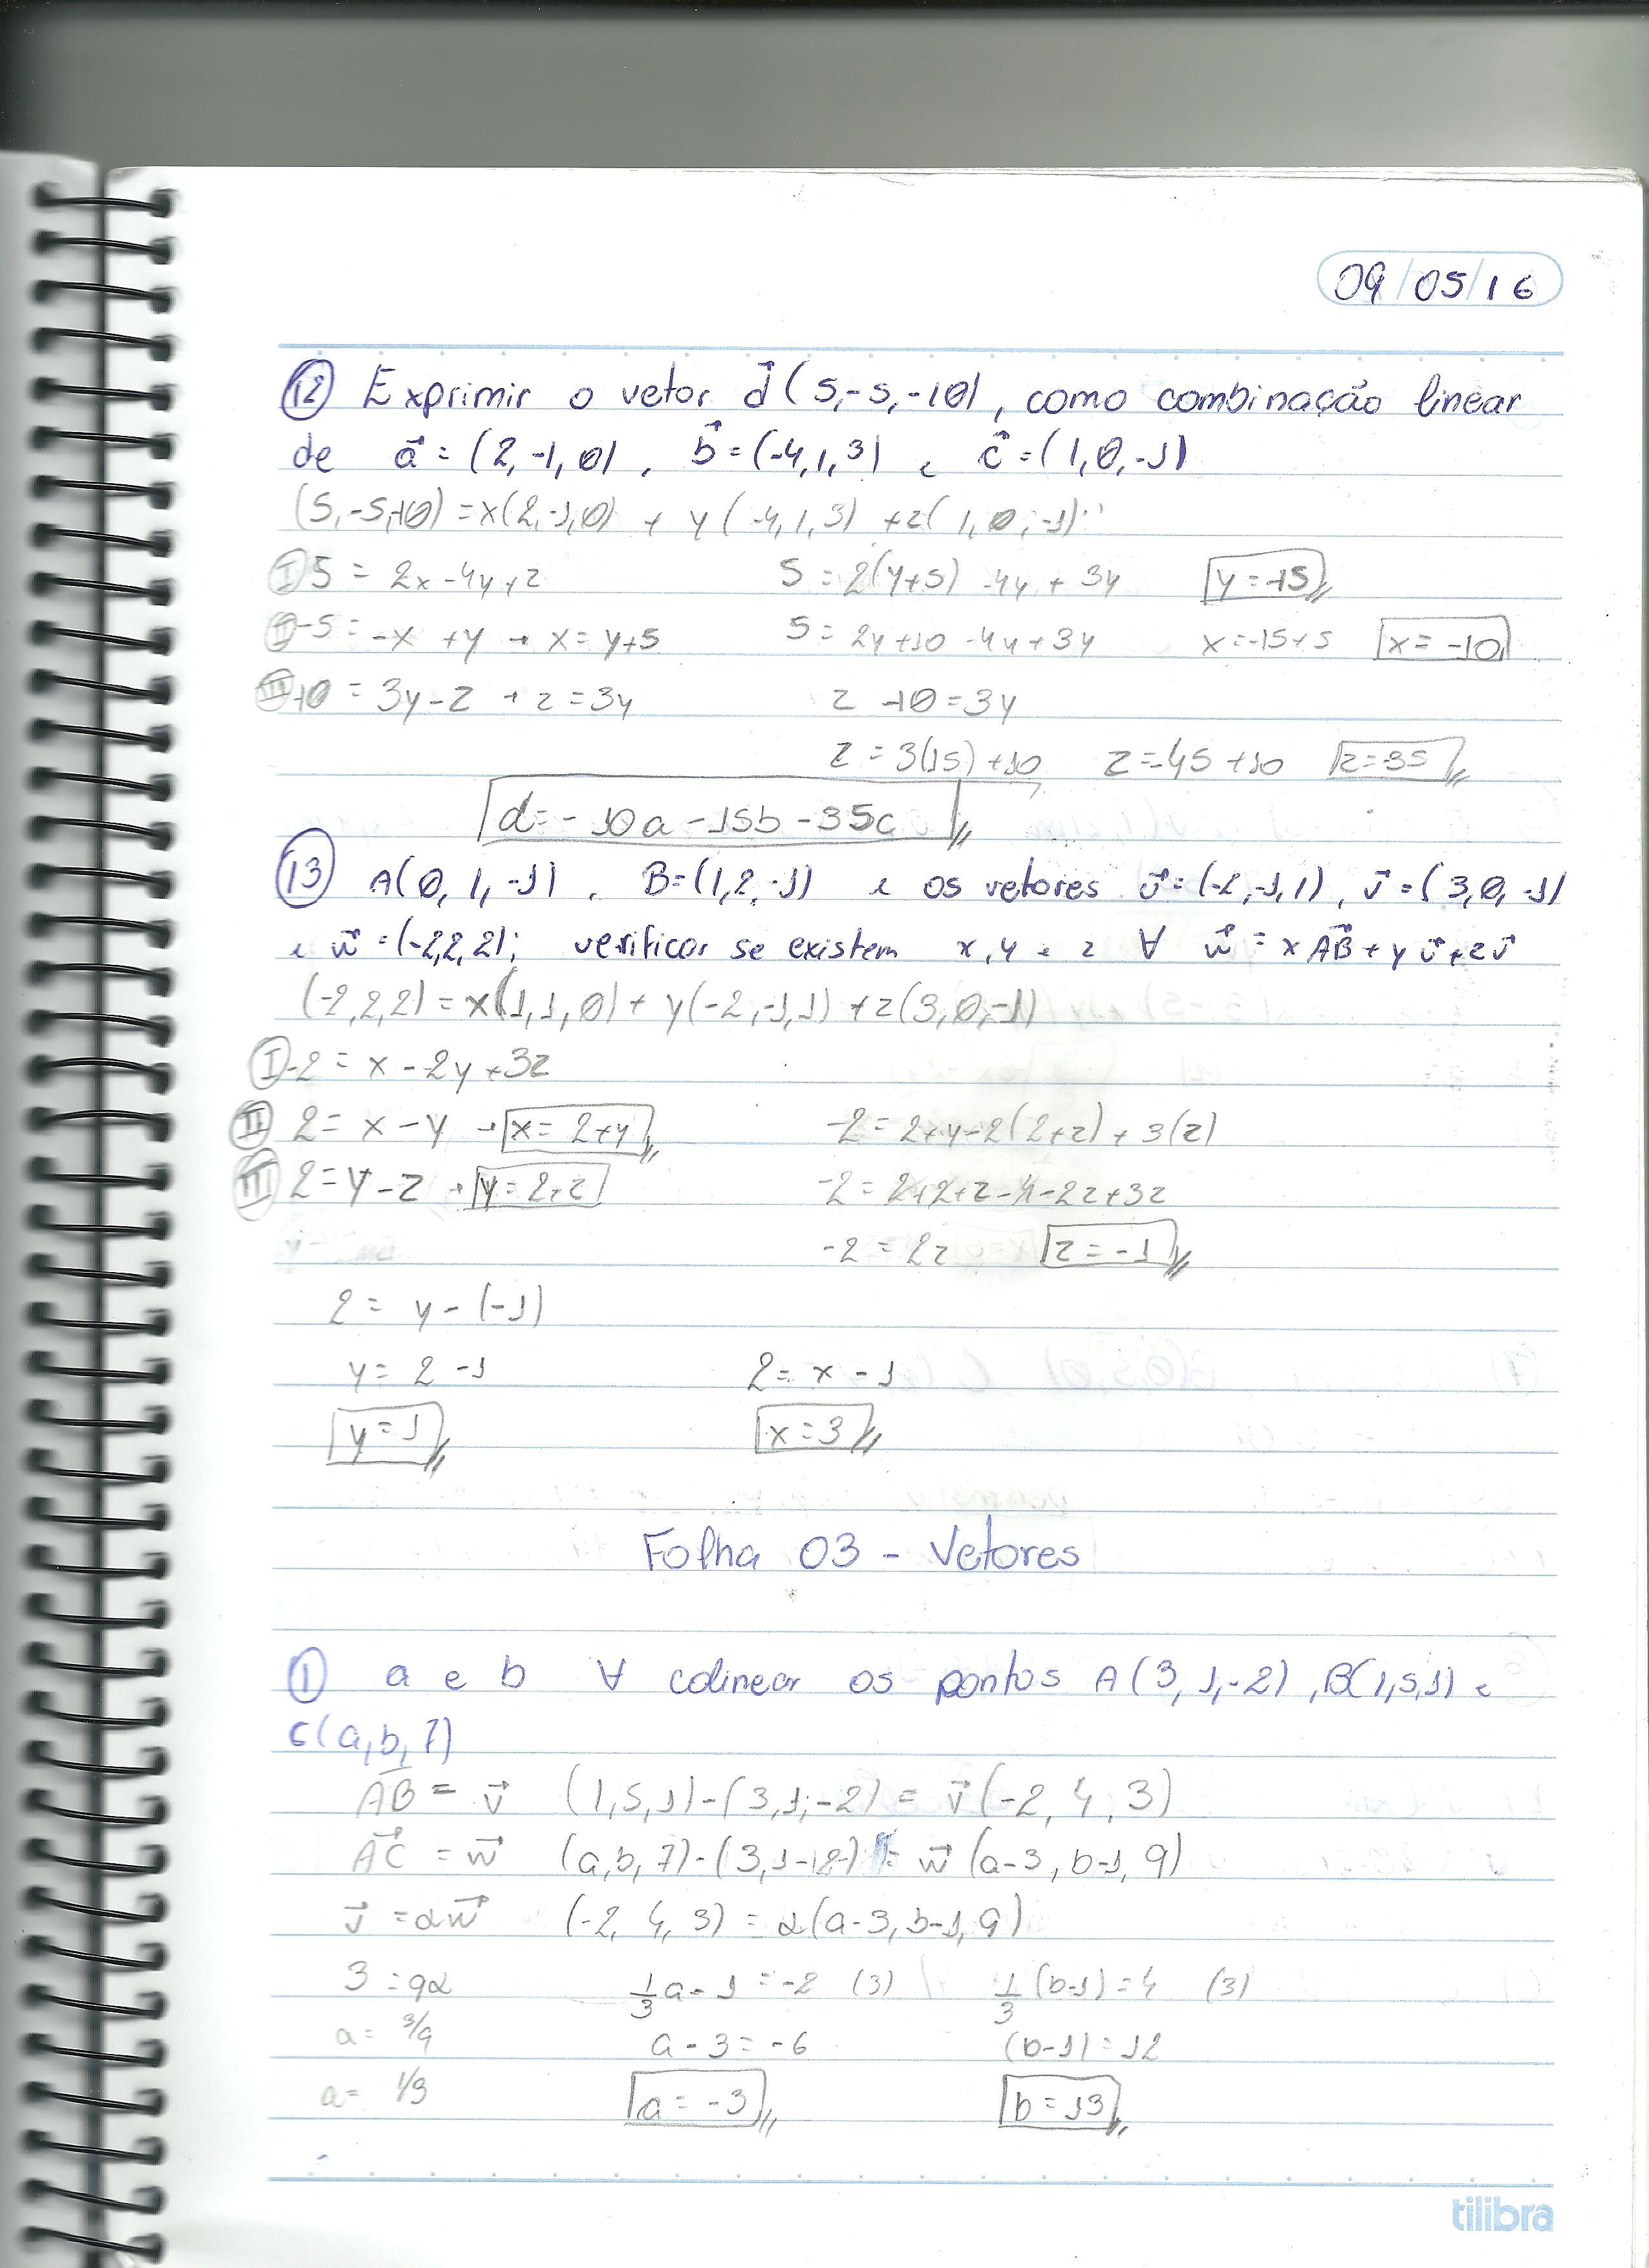 09/05/16
12 Exprimir o vetor d⃗ (5,-5,-10), como combinação linear
de a⃗ = (2,-1,0), b⃗ = (-4,1,3) e c⃗ = (1,0,-1)
(5,-5,-10) = x(2,-1,0) + y(-4,1,3) + z(1,0,-1)
I 5 = 2x-4y+z 5 = 2(y+5) -4y + 3y y = -15
II -5 = -x +y → x = y+5 5 = 2y+10 -4y+3y x = -15+5 x = -10
III -10 = 3y-z → z = 3y z -10 = 3y
z = 3(15) +10 z = -45 +10 z = -35
d = -10a -15b -35c
13 A(0,1,-1), B=(1,2,-1) e os vetores u⃗ = (-2,-1,1), v⃗ = (3,0,-1)
e w⃗ = (-2,2,2); verificar se existem x,y e z ∀ w⃗ = xAB⃗ + yu⃗ + zv⃗
(-2,2,2) = x(1,1,0) + y(-2,-1,1) + z(3,0,-1)
I -2 = x - 2y +3z
II 2 = x - y → x = 2+y -2 = 2+y-2(2+z) + 3(z)
III 2 = y - z → y = 2+z -2 = 2+2+z-4-2z+3z
-2 = 2z z = -1
2 = y - (-1)
y = 2 -1 2 = x - 1
y = 1 x = 3
Folha 03 - Vetores
1 a e b ∀ colinear os pontos A(3,1,-2), B(1,5,1) e
C(a,b,7)
AB = v⃗ (1,5,1)-(3,1,-2) = v⃗(-2,4,3)
AC⃗ = w⃗ (a,b,7)-(3,1-(2-) = w⃗(a-3, b-1, 9)
v⃗ = αw⃗ (-2, 4, 3) = α(a-3, b-1, 9)
3 = 9α 1/3 a - 1 = -2 (3) 1/3 (b-1) = 4 (3)
a = 3/9 a - 3 = -6 (b-1) = 12
a = 1/3 a = -3 b = 13
tilibra